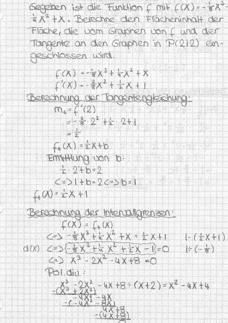 Gegeben ist die Funktion f mit f(x) = -⅛x³ -
¼x² + x. Berechne den Flächeninhalt der
Fläche, die vom Graphen von f und der
Tangente an den Graphen in P(2|2) ein-
geschlossen wird.
f(x) = -⅛x³ + ¼x² + x
f'(x) = -⅜x² + ½x + 1
Berechnung der Tangentengleichung:
mₜ = f'(2)
= -⅜ · 2² + ½ · 2 + 1
= ½
fₜ(x) = ½x + b
Ermittlung von b:
½ · 2 + b = 2
<=> 1 + b = 2 <=> b = 1
fₜ(x) = ½x + 1
Berechnung der Intervallgrenzen:
f(x) = fₜ(x)
<=> -⅛x³ + ¼x² + x = ½x + 1 |-(½x+1)
d(x) <=> -⅛x³ + ¼x² + ½x - 1 = 0 |:(-⅛)
<=> x³ - 2x² - 4x + 8 = 0
Pol.div.:
x³ - 2x² - 4x + 8 : (x+2) = x² - 4x + 4
-(x³ + 2x²)
-4x² - 4x
-(-4x² - 8x)
4x + 8
-(4x + 8)